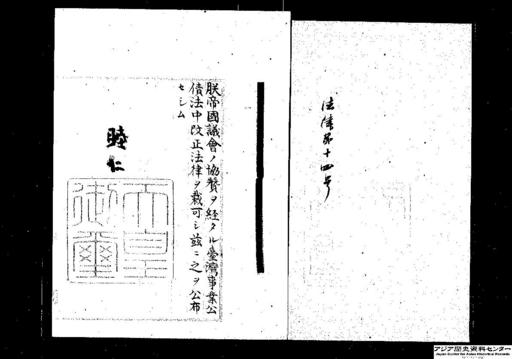 法律第十四号
朕帝國議會ノ協賛ヲ経タル臺灣事業公
債法中改正法律ヲ裁可シ茲ニ之ヲ公布
セシム
睦仁
天皇
御璽
アジア歴史資料センター
Japan Center for Asian Historical Records